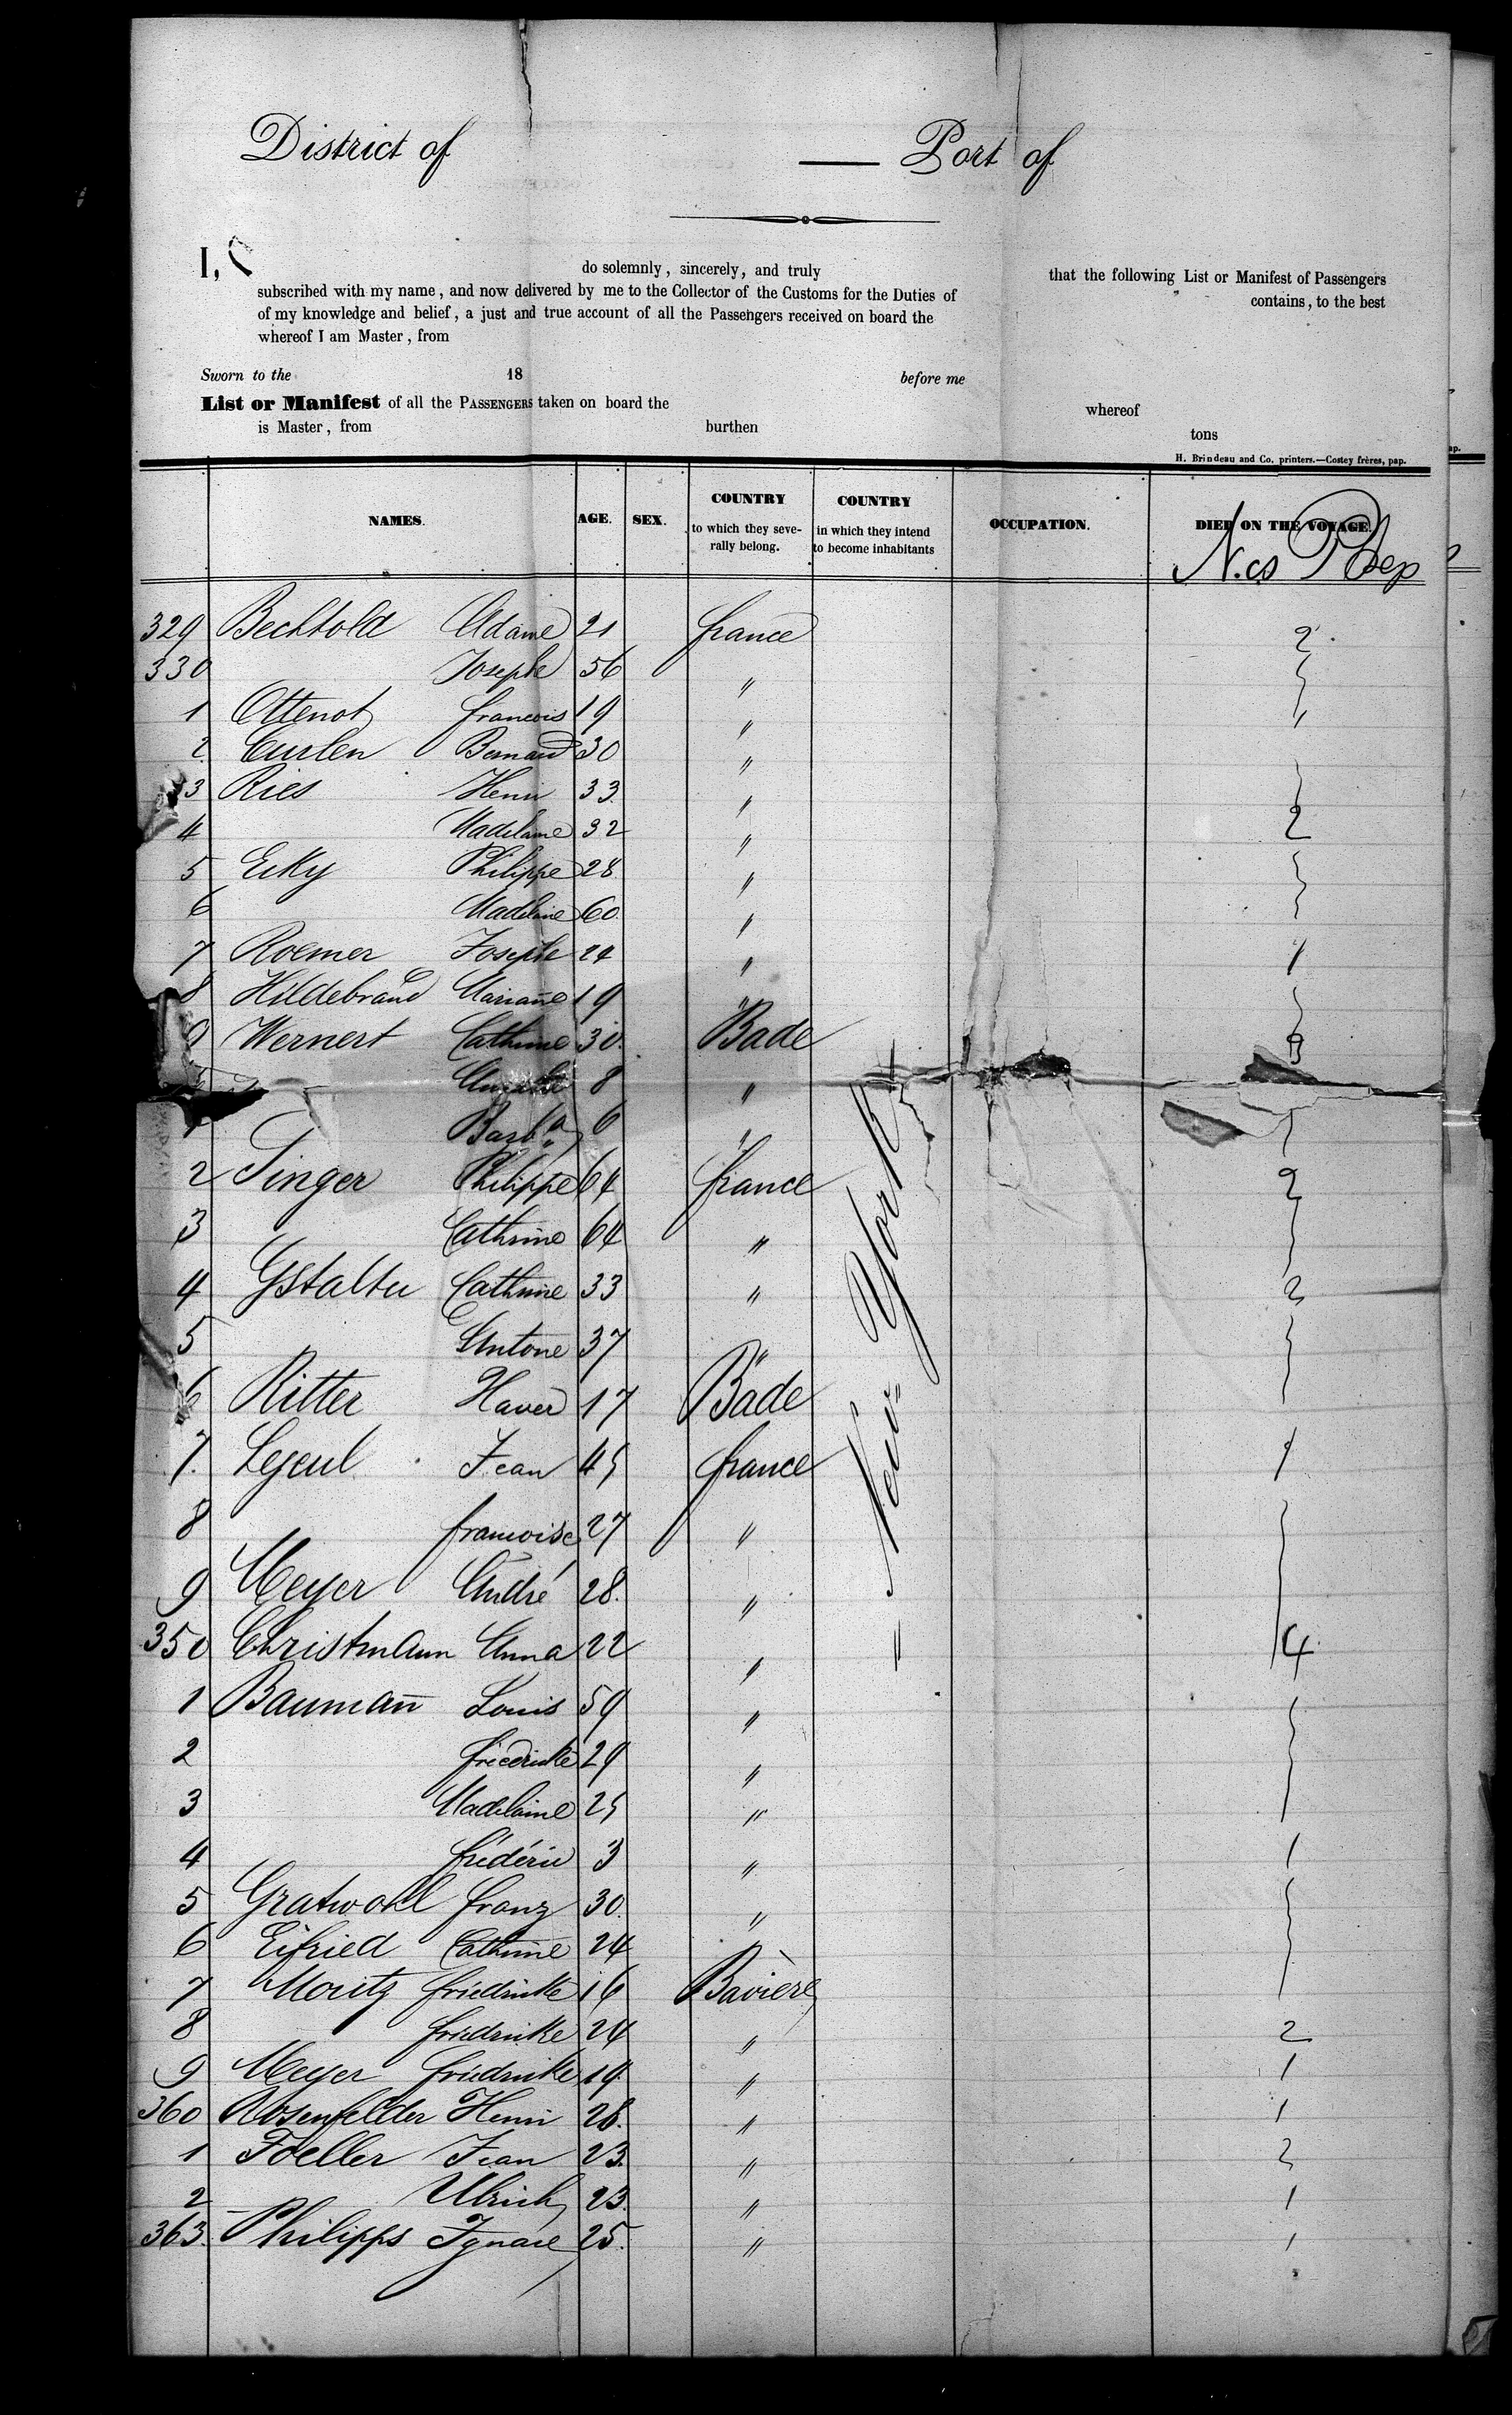 District of — Port of
I, do solemnly, sincerely, and truly that the following List or Manifest of Passengers
subscribed with my name, and now delivered by me to the Collector of the Customs for the Duties of contains, to the best
of my knowledge and belief, a just and true account of all the Passengers received on board the
whereof I am Master, from
Sworn to the 18 before me
List or Manifest of all the PASSENGERS taken on board the whereof
is Master, from burthen tons
H. Brindeau and Co, printers.—Costey frères, pap.
NAMES. AGE. SEX. COUNTRY to which they seve-rally belong. COUNTRY in which they intend to become inhabitants OCCUPATION. DIED ON THE VOYAGE.
329 Bechtold Adam 21 france 2
330 Joseph 56 "
1 Ottenot francois 19 " 1
2 Curlen Bernard 30 "
3 Ries Henri 33 "
4 Madelaine 32 " 2
5 Eiky Philippe 28 "
6 Madeleine 60 "
7 Roemer Joseph 24 " 1
8 Hildebrand Mariane 19 "
9 Wernert Cathrine 30 Bade
8 "
1 Barba 6 "
2 Singer Philippe 64 france 2
3 Cathrine 64 "
4 Gstalter Cathrine 33 " 2
5 Antone 37 "
6 Ritter Xaver 17 Bade
7 Lejeul Jean 45 france 1
8 francoise 27 "
9 Meyer André 28 "
350 Christmann Anna 22 " 4
1 Bauman̄ Louis 59 "
2 friedrike 29 "
3 Madelaine 25 "
4 frédéric 3 " 1
5 Gratwohl franz 30 "
6 Eifried Cathrine 24 "
7 Moritz friedrike 16 Bavière
8 friedrike 24 " 2
9 Meyer friedrike 19 " 1
360 Rosenfelder Henri 28 " 1
1 Foeller Jean 23 " 2
2 Ulrich 23 " 1
363 Philipps Ignace 25 " 1
New York